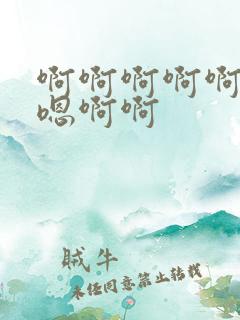 啊啊啊啊啊
嗯啊啊
贼牛
未经同意禁止转载